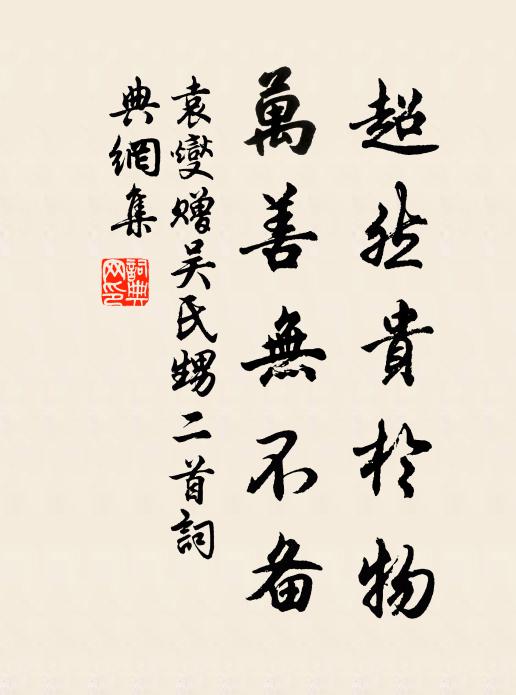 超然貴於物
萬善無不备
袁燮赠吴氏甥二首詞
典網集
詞典网印